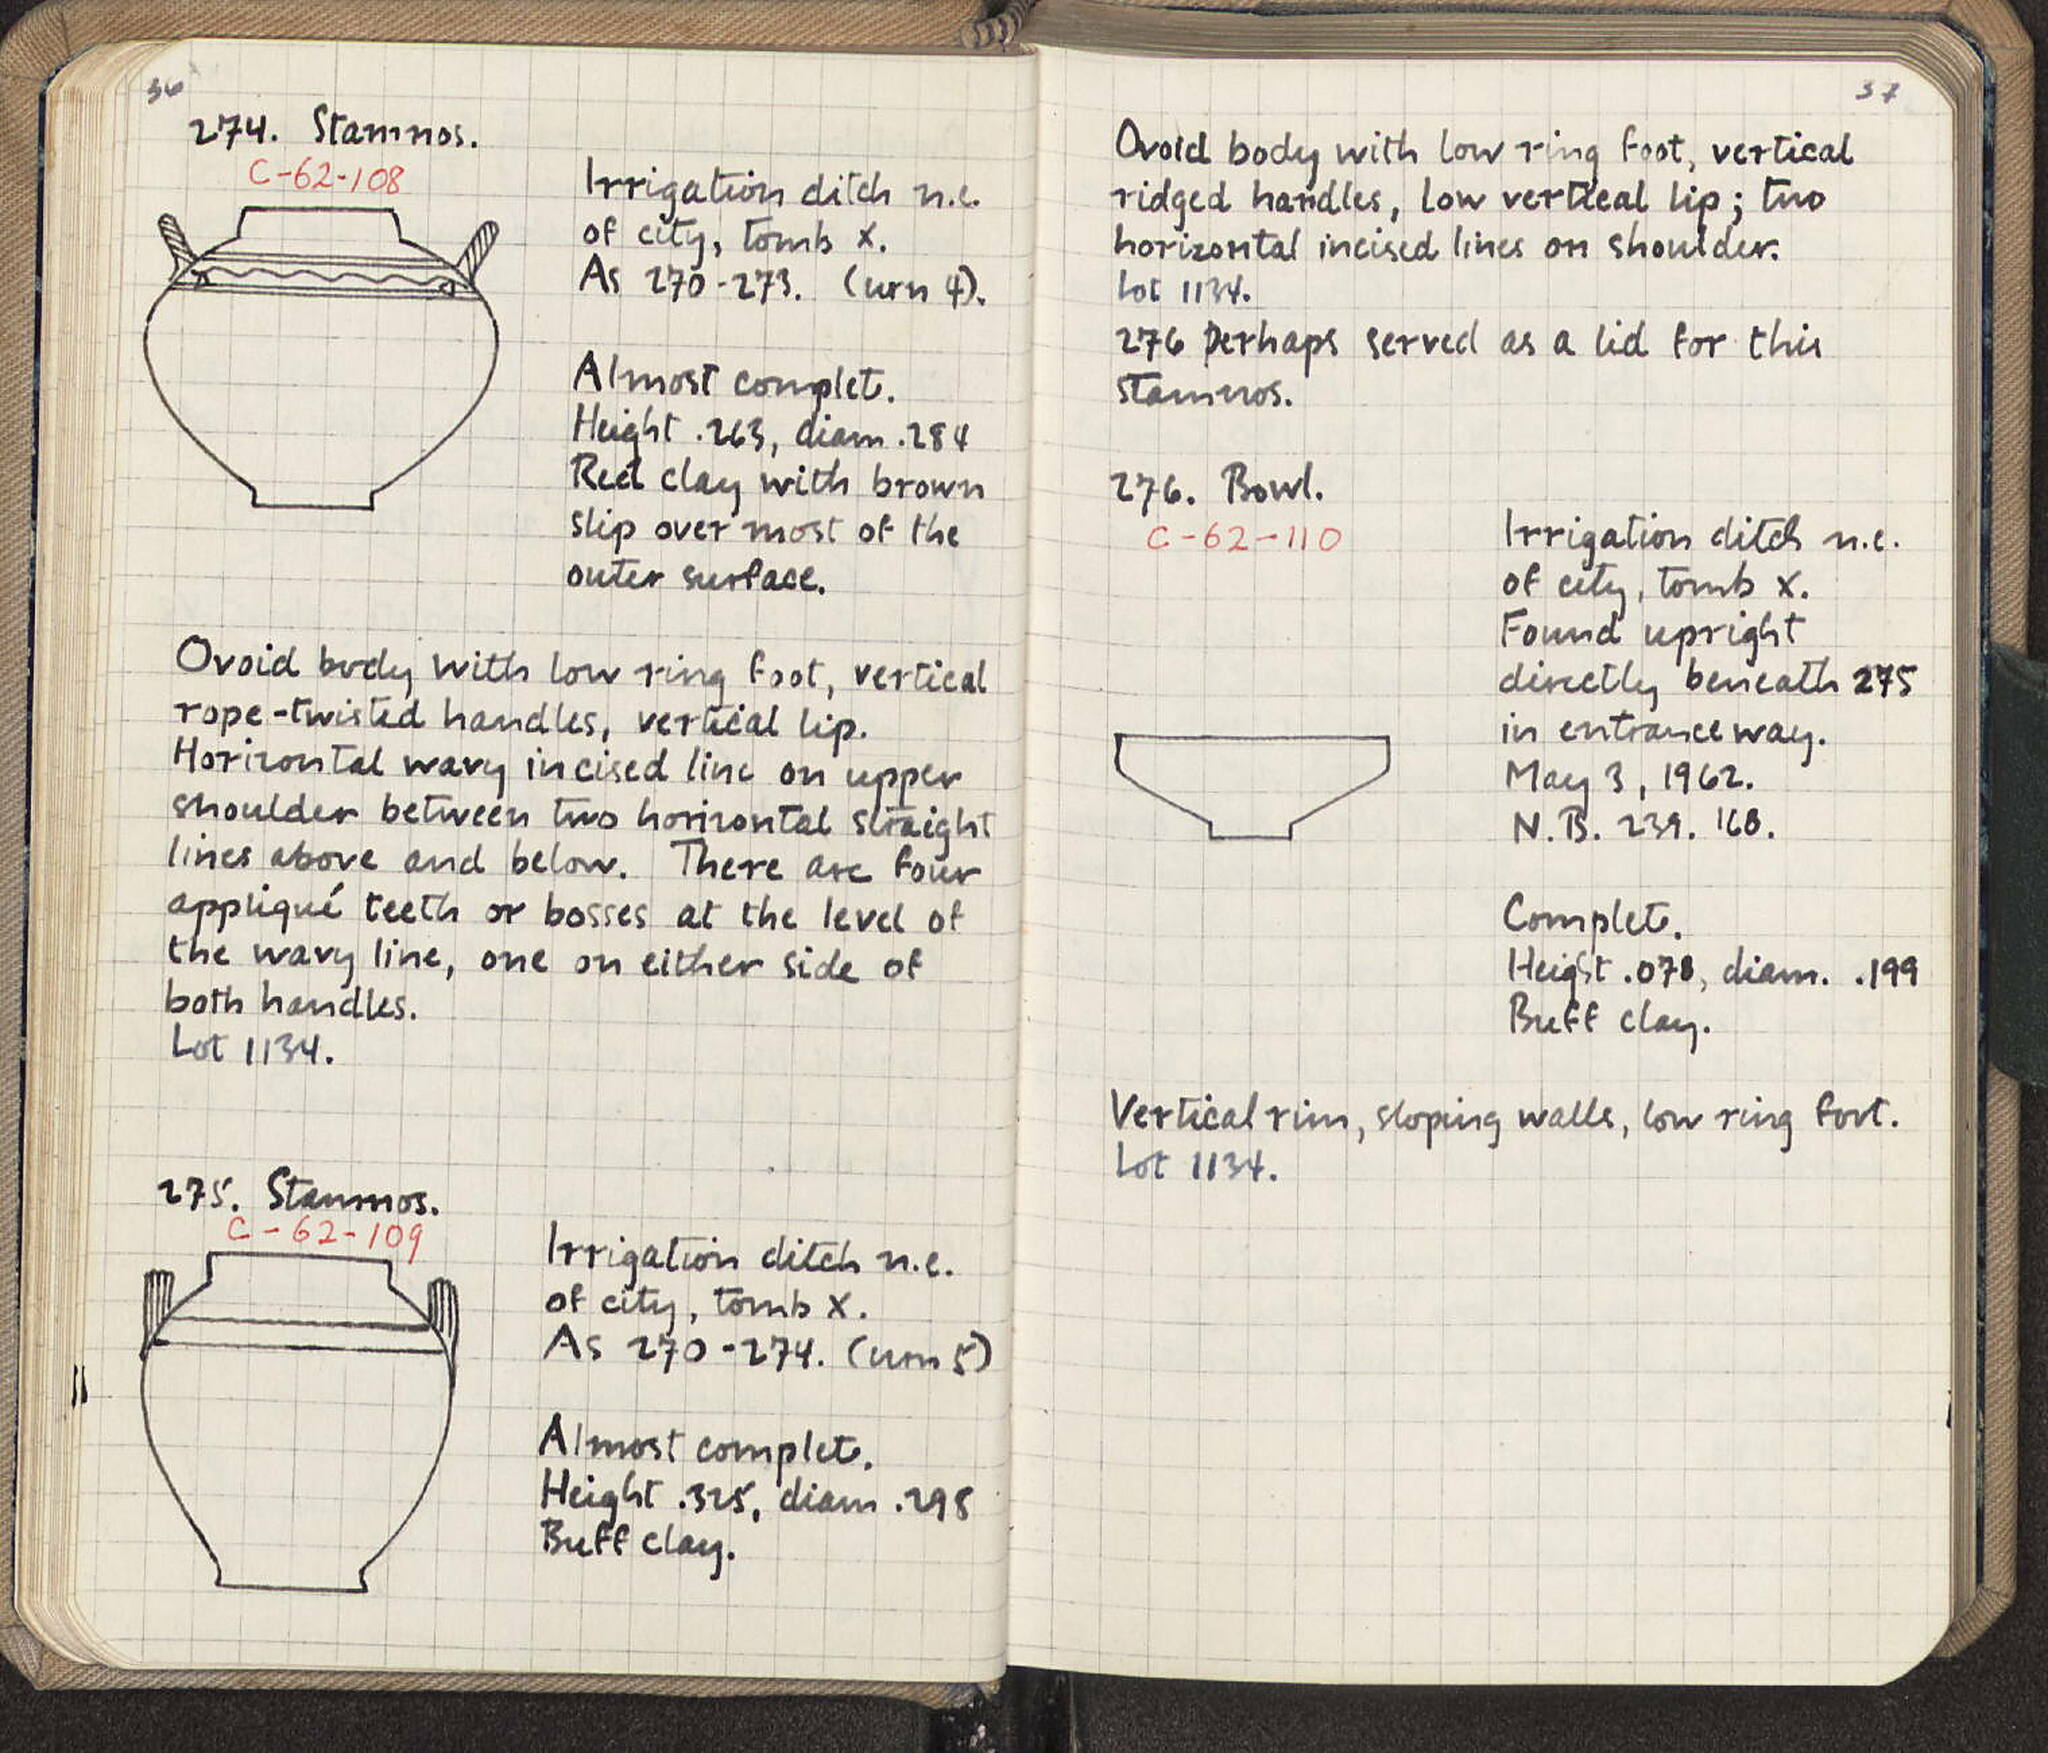 36
274. Stamnos.
C-62-108
Irrigation ditch n.e.
of city, tomb X.
As 270-273. (urn 4).
Almost complete.
Height .263, diam .284
Red clay with brown
slip over most of the
outer surface.
Ovoid body with low ring foot, vertical
rope-twisted handles, vertical lip.
Horizontal wavy incised line on upper
shoulder between two horizontal straight
lines above and below. There are four
appliqué teeth or bosses at the level of
the wavy line, one on either side of
both handles.
Lot 1134.
275. Stamnos.
C-62-109
Irrigation ditch n.e.
of city, tomb X.
As 270-274. (urn 5)
Almost complete.
Height .325, diam .298
Buff clay.
37
Ovoid body with low ring foot, vertical
ridged handles, low vertical lip; two
horizontal incised lines on shoulder.
Lot 1134.
276 Perhaps served as a lid for this
stamnos.
276. Bowl.
C-62-110
Irrigation ditch n.e.
of city, tomb X.
Found upright
directly beneath 275
in entrance way.
May 3, 1962.
N.B. 239. 168.
Complete.
Height .078, diam. .199
Buff clay.
Vertical rim, sloping walls, low ring foot.
Lot 1134.